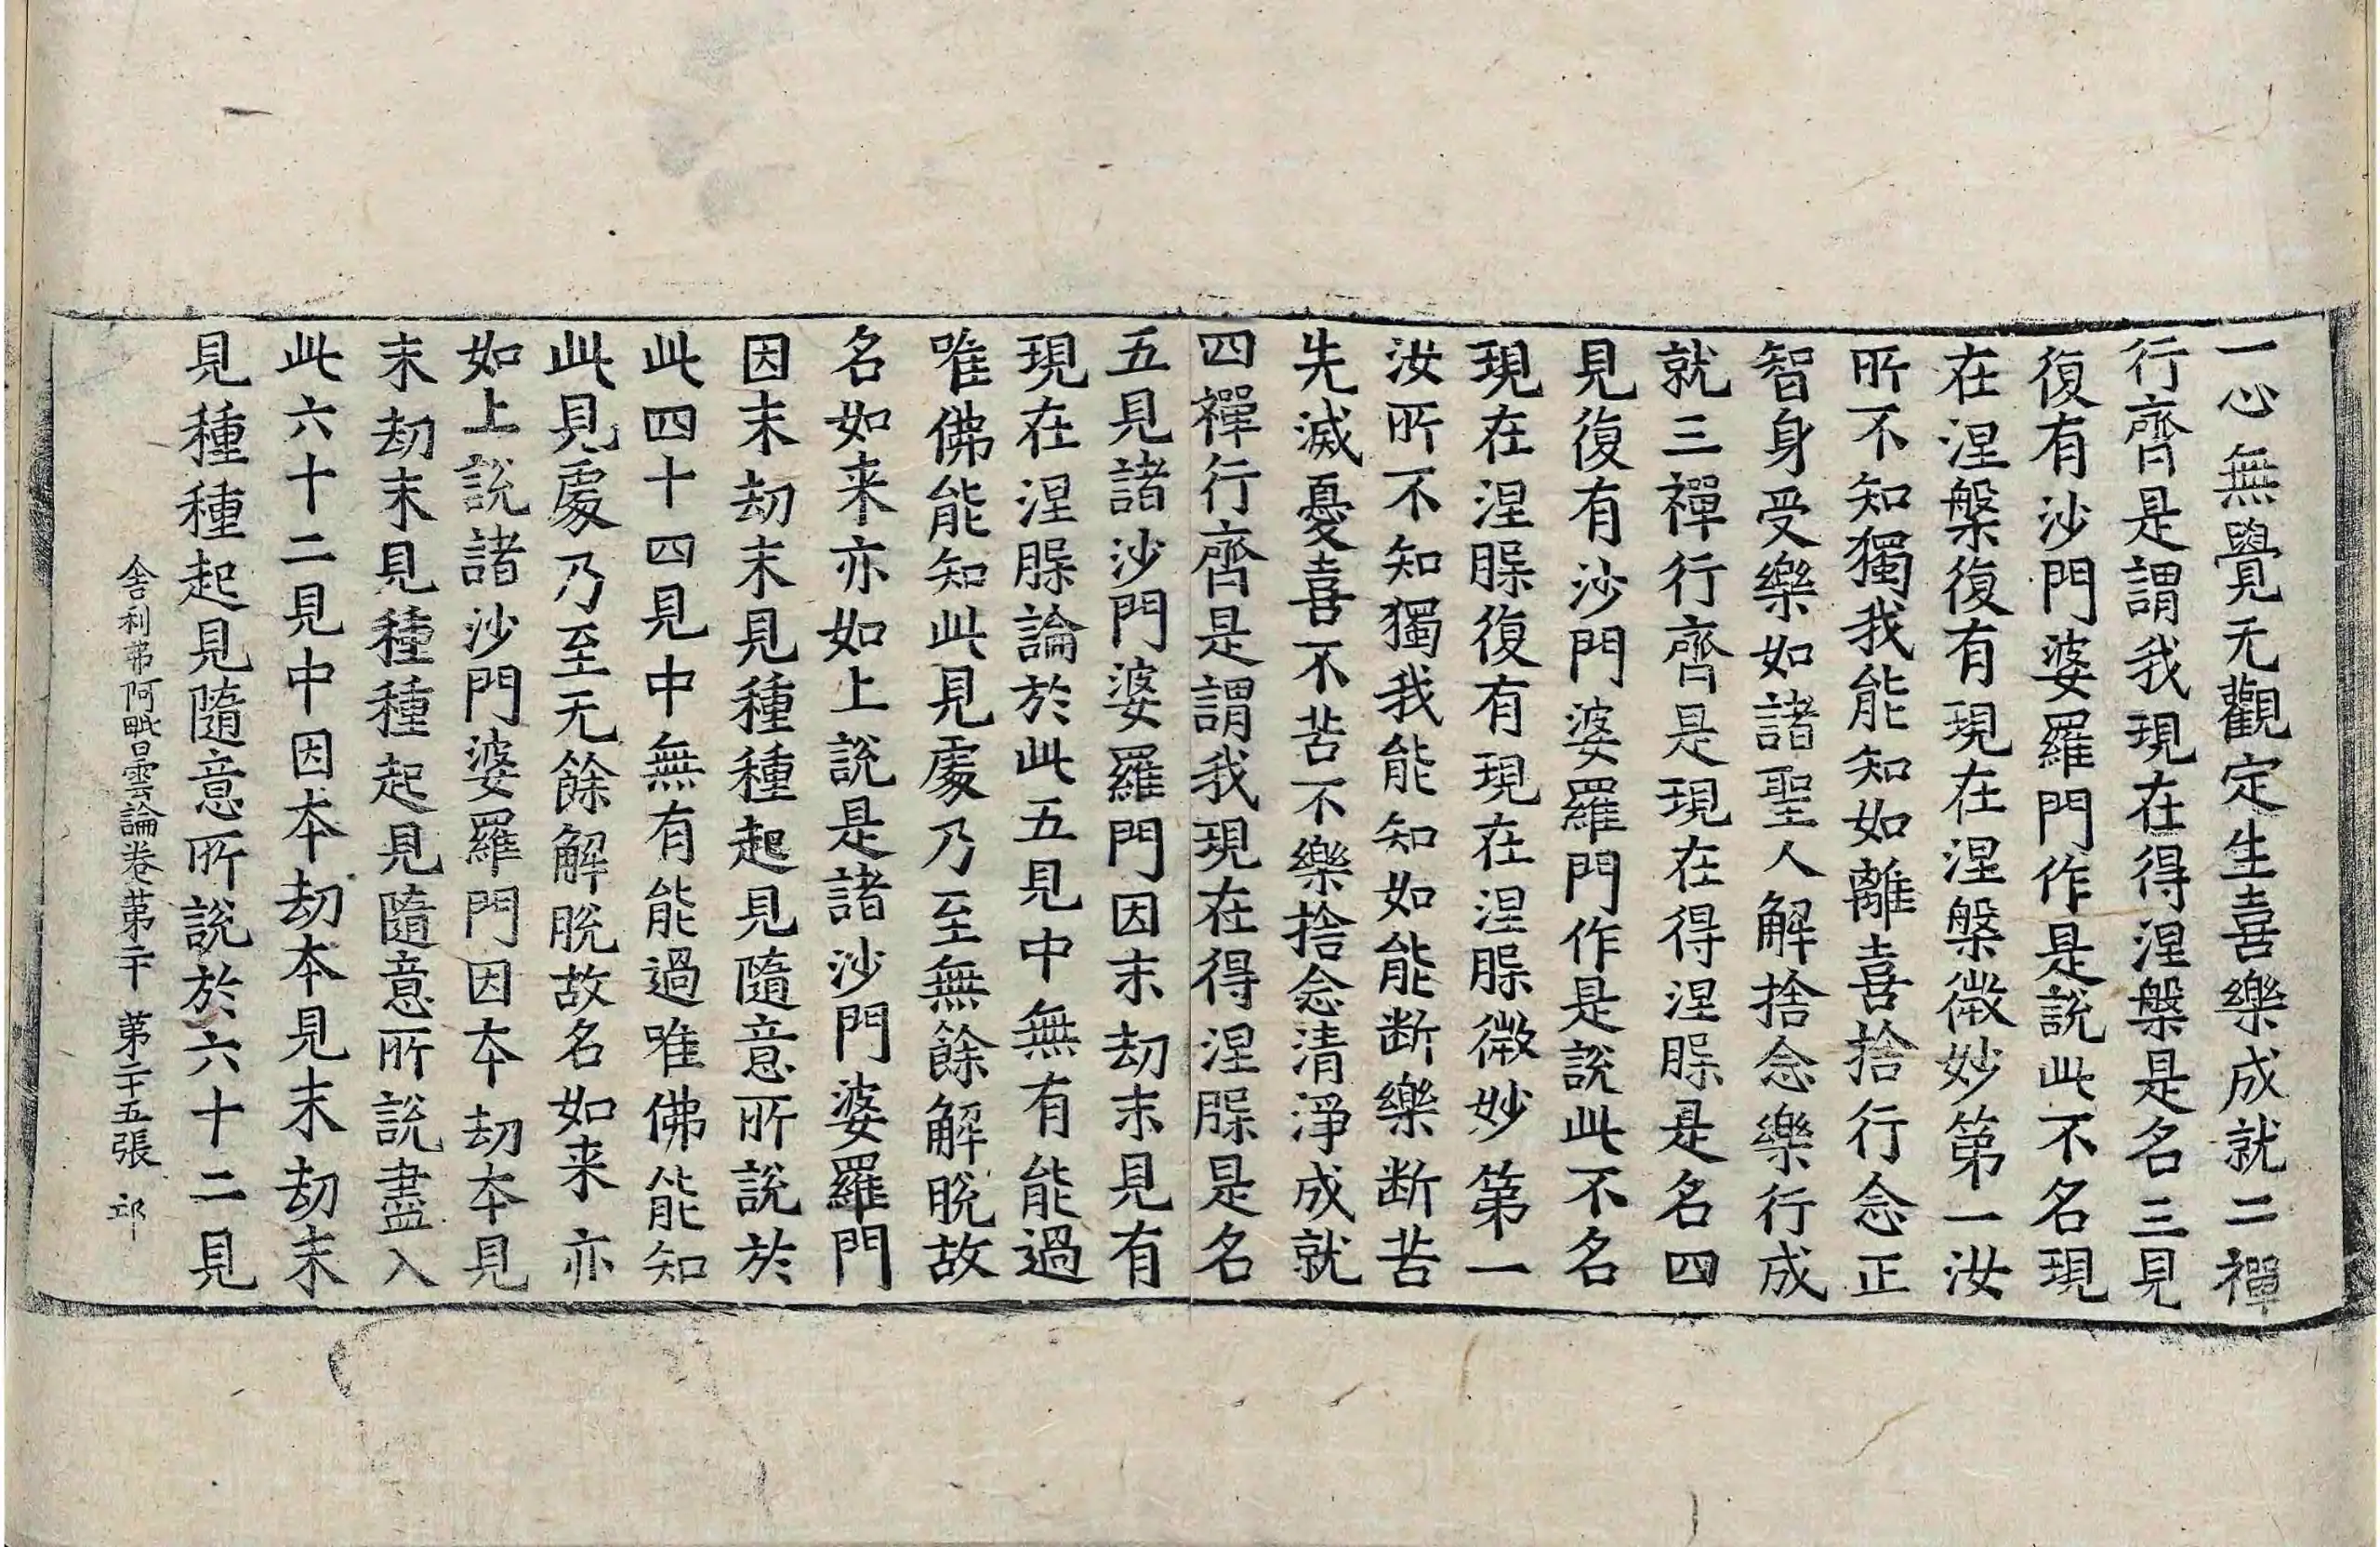 一心無覺无觀定生喜樂成就二禪
行齊是謂我現在得涅槃是名三見
復有沙門婆羅門作是說此不名現
在涅槃復有現在涅槃微妙第一汝
所不知獨我能知如離喜捨行念正
智身受樂如諸聖人解捨念樂行成
就三禪行齊是現在得涅𦙾是名四
見復有沙門婆羅門作是說此不名
現在涅𦙾復有現在涅𦙾微妙第一
汝所不知獨我能知如能断樂断苦
先滅憂喜不苦不樂捨念清淨成就
四禪行齊是謂我現在得涅𦙾是名
五見諸沙門婆羅門因末劫末見有
現在涅𦙾論於此五見中無有能過
唯佛能知此見處乃至無餘解脫故
名如来亦如上說是諸沙門婆羅門
因末劫末見種種起見隨意所說於
此四十四見中無有能過唯佛能知
此見處乃至无餘解脫故名如来亦
如上說諸沙門婆羅門因本劫本見
末劫末見種種起見隨意所說盡入
此六十二見中因本劫本見末劫末
見種種起見隨意所說於六十二見
舍利弗阿毗曇論卷第二十 第二十五張 邱